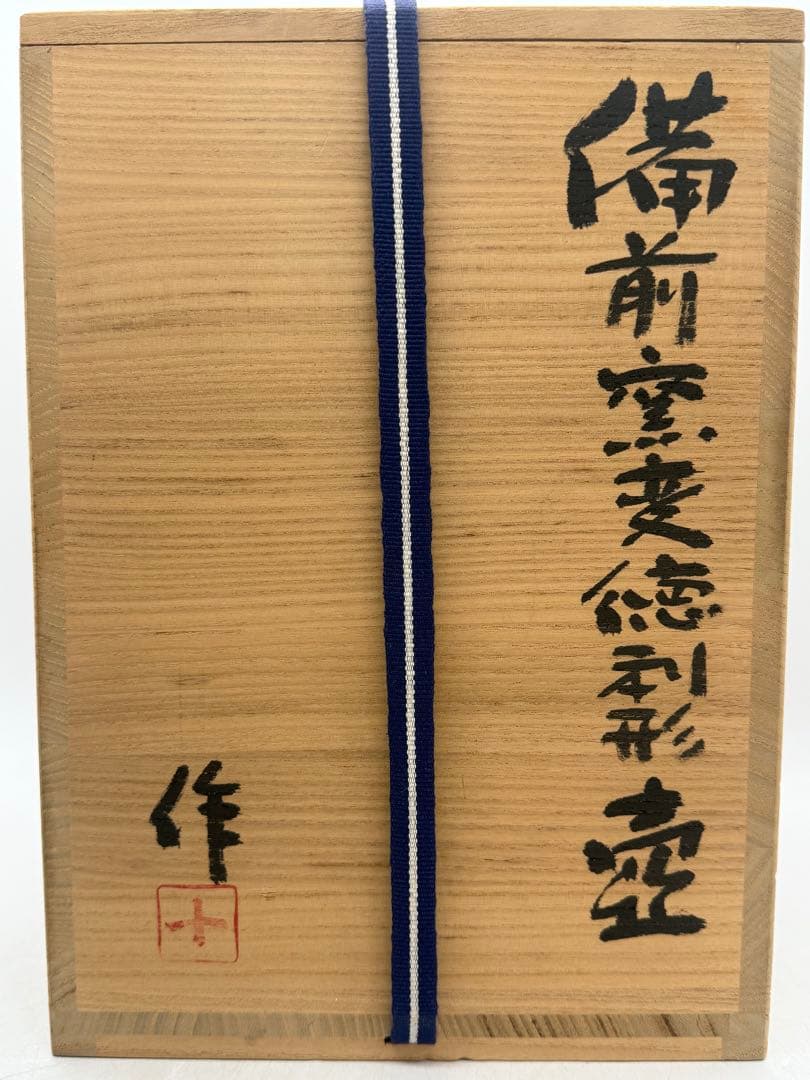 備前窯変徳利形壺
作
十